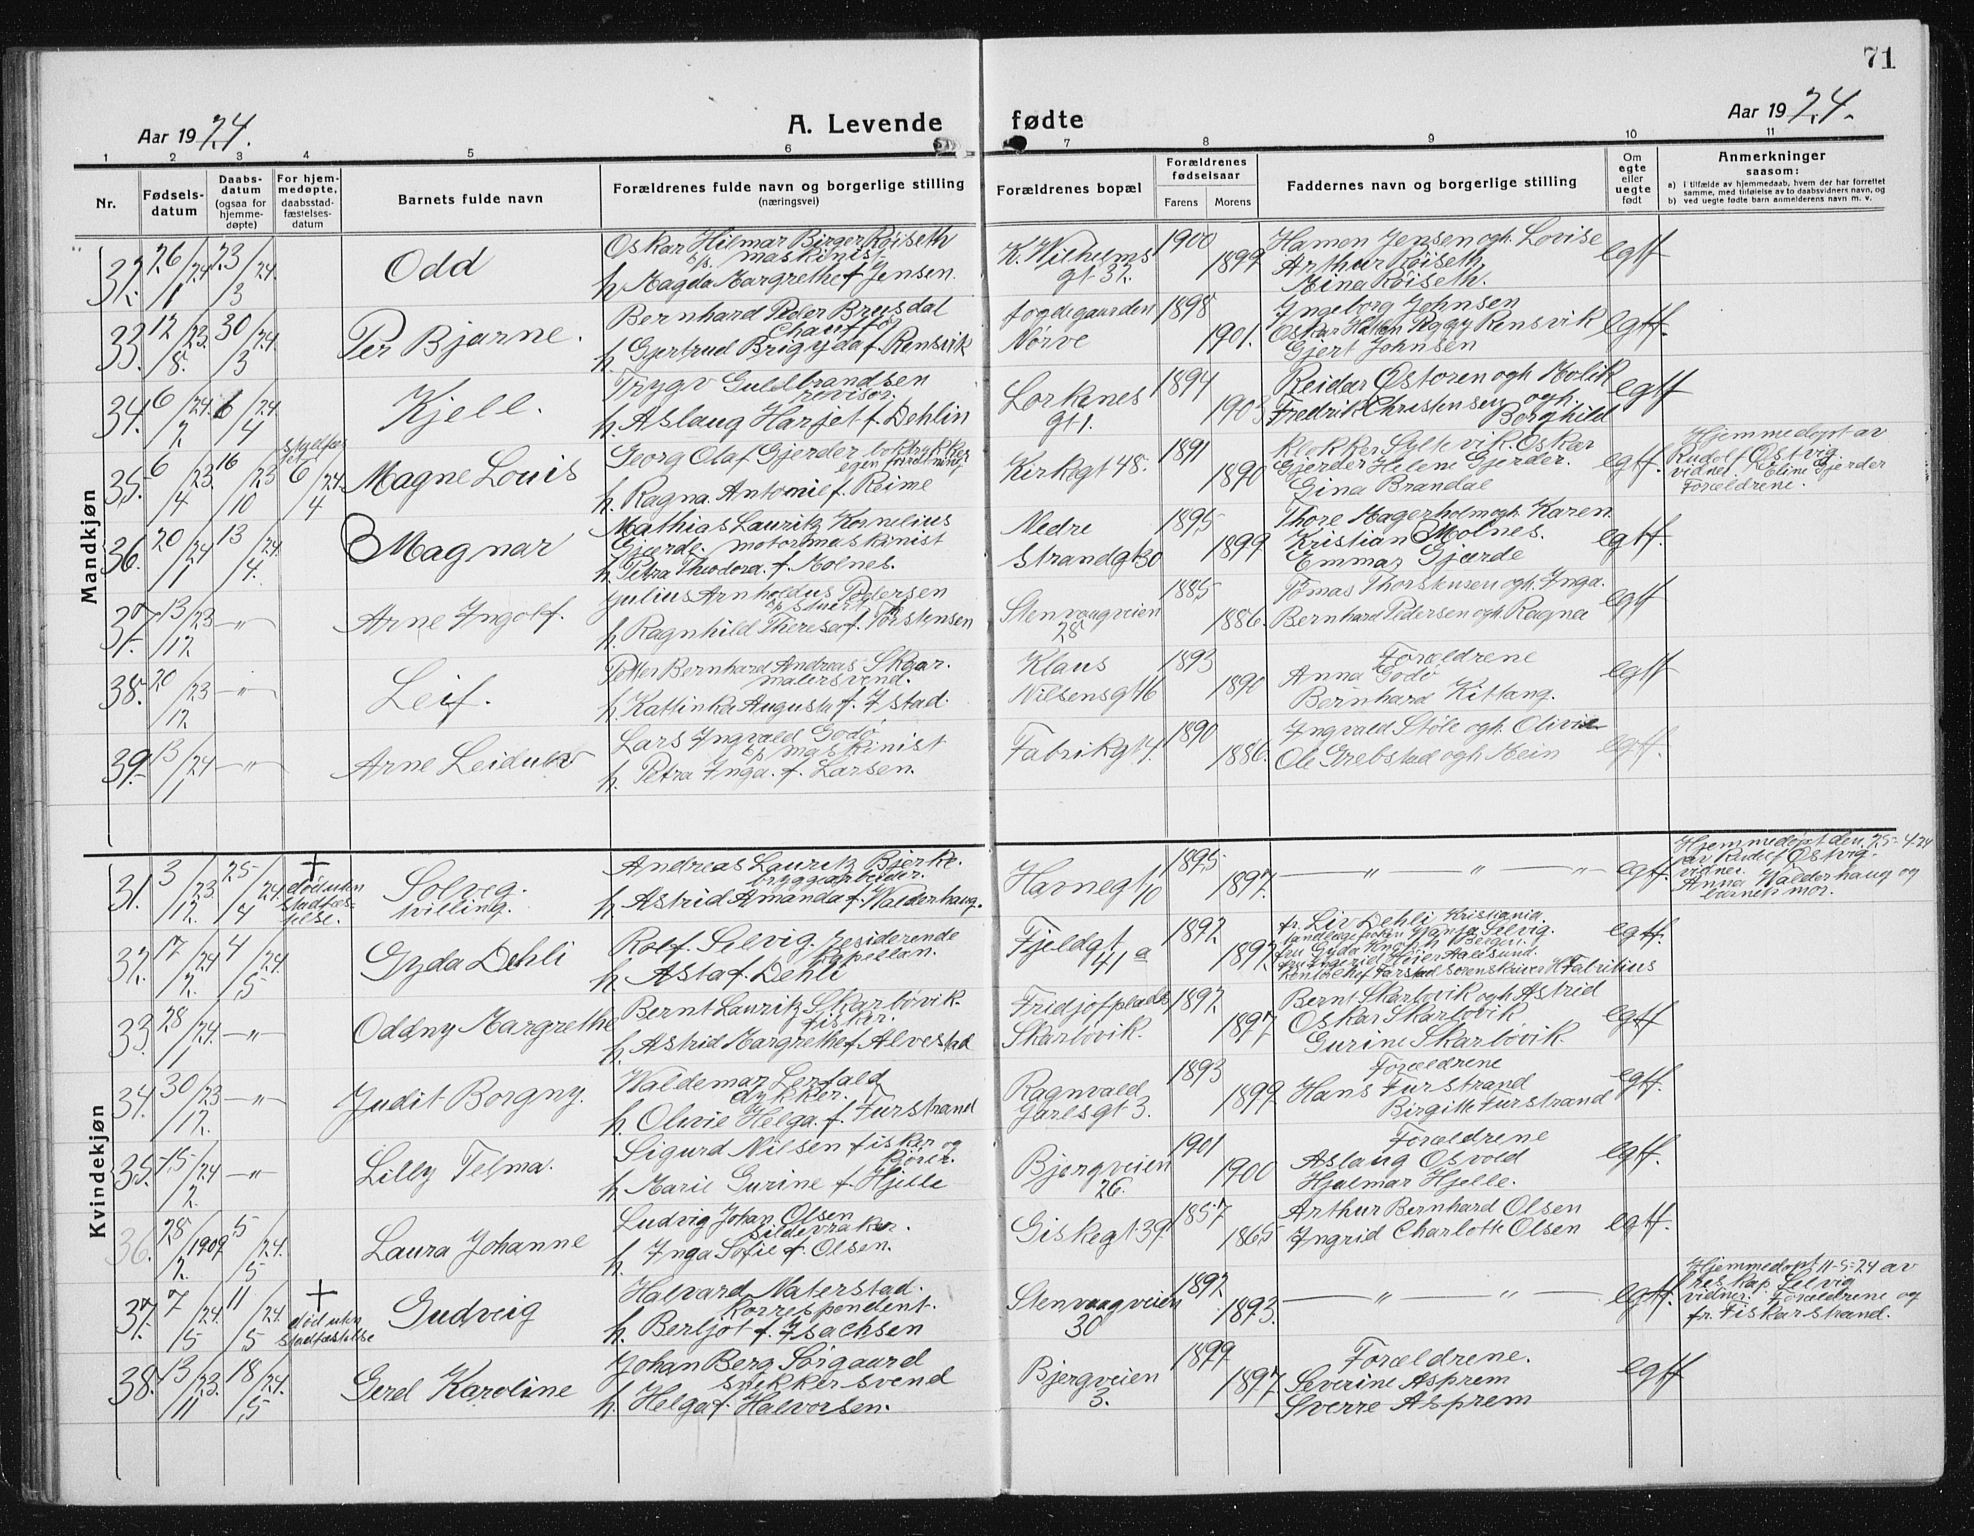 71
Aar 1924.
A. Levende fødte
Aar 1924.
1 2 3 4 5 6 7 8 9 10 11
Nr.
Fødsels-
datum
Daabs-
datum
(ogsaa for
hjemme-
døpte)
For hjem-
medøpte,
daabsstad-
fæstelses-
datum
Barnets fulde navn
Forældrenes fulde navn og borgerlige stilling
(næringsvei)
Forældrenes bopæl
Forældrenes
fødselsaar
Farens Morens
Faddernes navn og borgerlige stilling
Om
egte
eller
uegte
født
Anmerkninger
saasom:
a) i tilfælde av hjemmedaab, hvem der har forrettet
samme, med tilføielse av to daabsvidners navn, og
b) ved uegte fødte barn anmelderens navn m. v.
Mandkjøn
32. 26/1 24 23/3 24
Odd
Oskar Hilmar Birger Røiseth
maskinist
h. Magda Margrethe f. Jensen.
K. Wilhelms
gt 32.
1900 1899
Hamon Jensen ogh. Lovise
Arthur Røiseth
Mina Røiseth.
egtf
33. 12/8 23. 30/3 24
Per Bjarne.
Bernhard Peder Brusdal
Chauffør
h. Gjertrud Brigyda f. Rensvik
Fogdegaarden
Nørve
1898 1901.
Ingeborg Johnsen
Oskar Hatlen Peggy Rensvik
Gjert Johnsen
egtf.
34. 6/2 24. 6/4 24
Kjell.
Trygv Guldbrandsen
revisor.
h. Aslaug Harjet f. Dehlin
Lorkenes
gt 1.
1894 1903
Reidar Østoren ogh. Molik
Fredrik Christensen ogh.
Borghild
egtf
35. 6/4 23. 16/10 23 6/4 24.
Magne Louis
Georg Olaf Gjerder boktrykker
egen forretning
h. Ragna Antonie f. Reime
Kirkegt 48.
1891 1890
Klokker Syltevik. Oskar
Gjerder Helene Gjerder.
Gina Brandal
egtf.
Hjemmedøpt av
Rudolf Østvig.
vidner. Eline Gjerder
Forældrene.
36. 20/1 24 13/4. 24
Magnar
Mathias Lauritz Kornelius
Gjærde. motormaskinist
h. Petra Theodora. f. Molnes.
Nedre
Strandgt 30
1895 1899
Thore Magerholm ogh. Karen
Kristian Molnes.
Emma Gjærde
egtf.
37. 13/12 23 — " —
Arne Ingolf.
Julius Arnholdus Pedersen
stuert
h. Ragnhild Theresa f. Torstensen
Stenvaagveien
28
1885 1886.
Tomas Thorstensen ogh. Inga.
Bernhard Pedersen ogh. Ragna
egtf
38. 20/12 23 — " —
Leif.
Petter Bernhard Andreas Skaar.
malersvend.
h. Kattinka Augusta f. Istad.
Klaus
Nilsensgt 16
1893 1890
Forældrene
Anna Godø
Bernhard Kittang.
egtf
39. 13/1 24 — " —
Arne Leidulv
Lars Ingvald Godø
maskinist
h. Petra Inga. f. Larsen.
Fabrikgt 4.
1890 1886.
Ingvald Støle ogh. Olivie
Ole Grebstad ogh. Mein
egtf.
Kvindekjøn
31. 3/12 23 25/4 24.
+
død uten
stadfæs-
telse.
Solveg.
tvilling.
Andreas Lauritz Bjerke.
bryggearbeider.
h. Astrid Amanda f. Walderhaug.
Havnegt 10
1895 1897.
— " — " —
egtf.
Hjemmedøpt den 25-4 24
av Rudolf Østvig.
vidner.
Anna Walderhaug og
barnets mor.
32. 17/2 24 4/5 24.
Gyda Dehli
Rolf. Selvig. residerende
kapellan.
h. Asta f. Dehli
Fjeldgt
41 a
1892. 1892.
fr. Liv Dehli Kristiania.
fru Gyda Knoph Bergen.
fru Ingerid Meier Aalesund.
Kontorchef Farstad Sorenskriver H. Fabritius
egtf.
33. 28/1 24. — " —
Oddny Margrethe
Bernt Lauritz Skarbøvik.
fisker.
h. Astrid Margrethe f. Alvestad
Fridjofplads
Skarbøvik.
1892. 1897.
Bernt Skarbøvik ogh. Astrid
Oskar Skarbøvik
Gurine Skarbøvik.
egtf
34. 30/12. 23 — " —
Judit Borgny.
Waldemar Lerfald
dykker.
h. Olivie Helga. f. Furstrand
Ragnvald
Jarlsgt 3.
1893 1899.
Forældrene
Hans Furstrand
Birgitte Furstrand
egtf.
35. 15/2 24 — " —
Lilly Telma.
Sigurd Nilsen fisker og
kjører.
h. Marie Gurine f. Hjelle
Bjergveien
26.
1901 1900
Forældrene
Aslaug Osvold
Hjalmar Hjelle.
egtf.
36. 28/2. 1909 5/5 24.
Laura Johanne
Ludvig Johan Olsen
sildevraker.
h. Inga Sofie f. Olsen.
Giskegt 39.
1857 1865
Arthur Bernhard Olsen
Ingrid Charlotte Olsen
egtf.
37. 7/5 24. 11/5 24.
+
død uten
stadfæstelse
Gudveig
Halvard Naterstad.
Korrespondent.
h. Berljot f. Isachsen
Stenvaagveien
30
1892. 1893.
— " — " —
egtf.
Hjemmedøpt 11-5-24 av
res. kap. Selvig
vidner. Forældrene og
fr. Fiskarstrand.
38. 13/11 23. 18/5 24.
Gerd Karoline
Johan Berg Sørgaard
snekkersvend
h. Helga f. Halvorsen.
Bjergveien
3.
1899 1897.
Forældrene.
Severine Asprem
Sverre Asprem
egtf